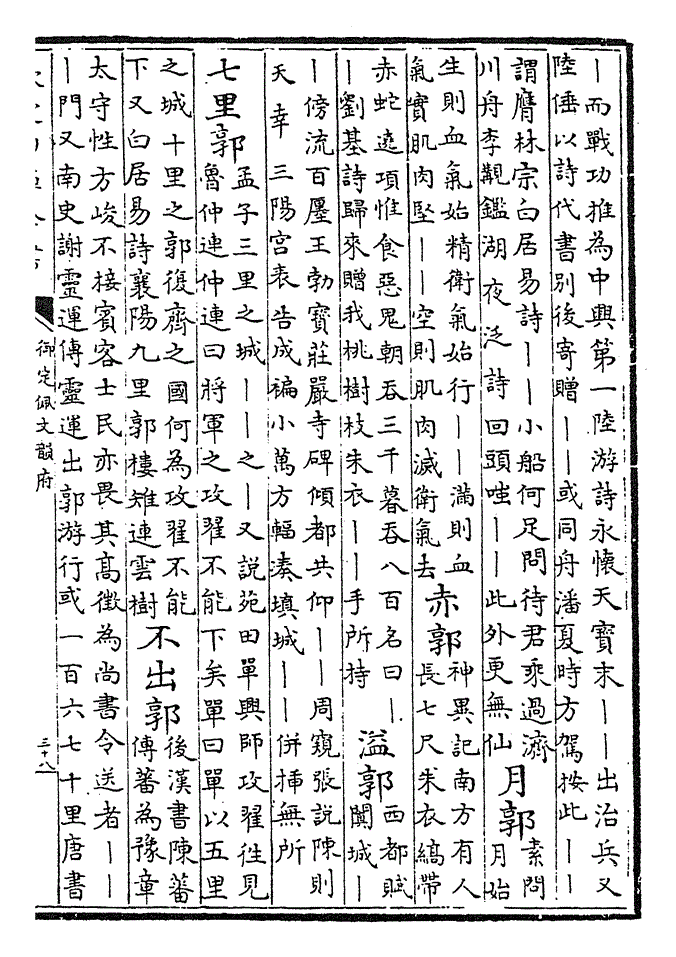 ｜而戰功推為中興第一陸游詩永懷天寶末｜｜出治兵又
陸倕以詩代書别後寄贈｜｜或同舟潘夏時方駕按此｜｜
謂膺林宗白居易詩｜｜小船何足問待君乘過濟
川舟李覯鑑湖夜泛詩回頭嗤｜｜此外更無仙
月郭
素問
月始
生則血氣始精衛氣始行｜｜滿則血
氣實肌肉堅｜｜空則肌肉減衛氣去
赤郭
神異記南方有人
長七尺朱衣縞帶
赤蛇遶項惟食惡鬼朝吞三千暮吞八百名曰｜
｜劉基詩歸來贈我桃樹枝朱衣｜｜手所持
溢郭
西都賦
闐城｜
｜傍流百廛王勃寶莊嚴寺碑傾都共仰｜｜周窺張說陳則
天幸三陽宮表告成褊小萬方輻湊填城｜｜併揷無所
七里郭
孟子三里之城｜｜之｜又說苑田單興師攻翟徃見
魯仲連仲連曰將軍之攻翟不能下矣單曰單以五里
之城十里之郭復齊之國何為攻翟不能
下又白居易詩襄陽九里郭樓雉連雲樹
不出郭
後漢書陳蕃
傳蕃為豫章
太守性方峻不接賓客士民亦畏其高徵為尚書令送者｜｜
｜門又南史謝靈運傳靈運出郭游行或一百六七十里唐書
御定佩文韻府
三十八